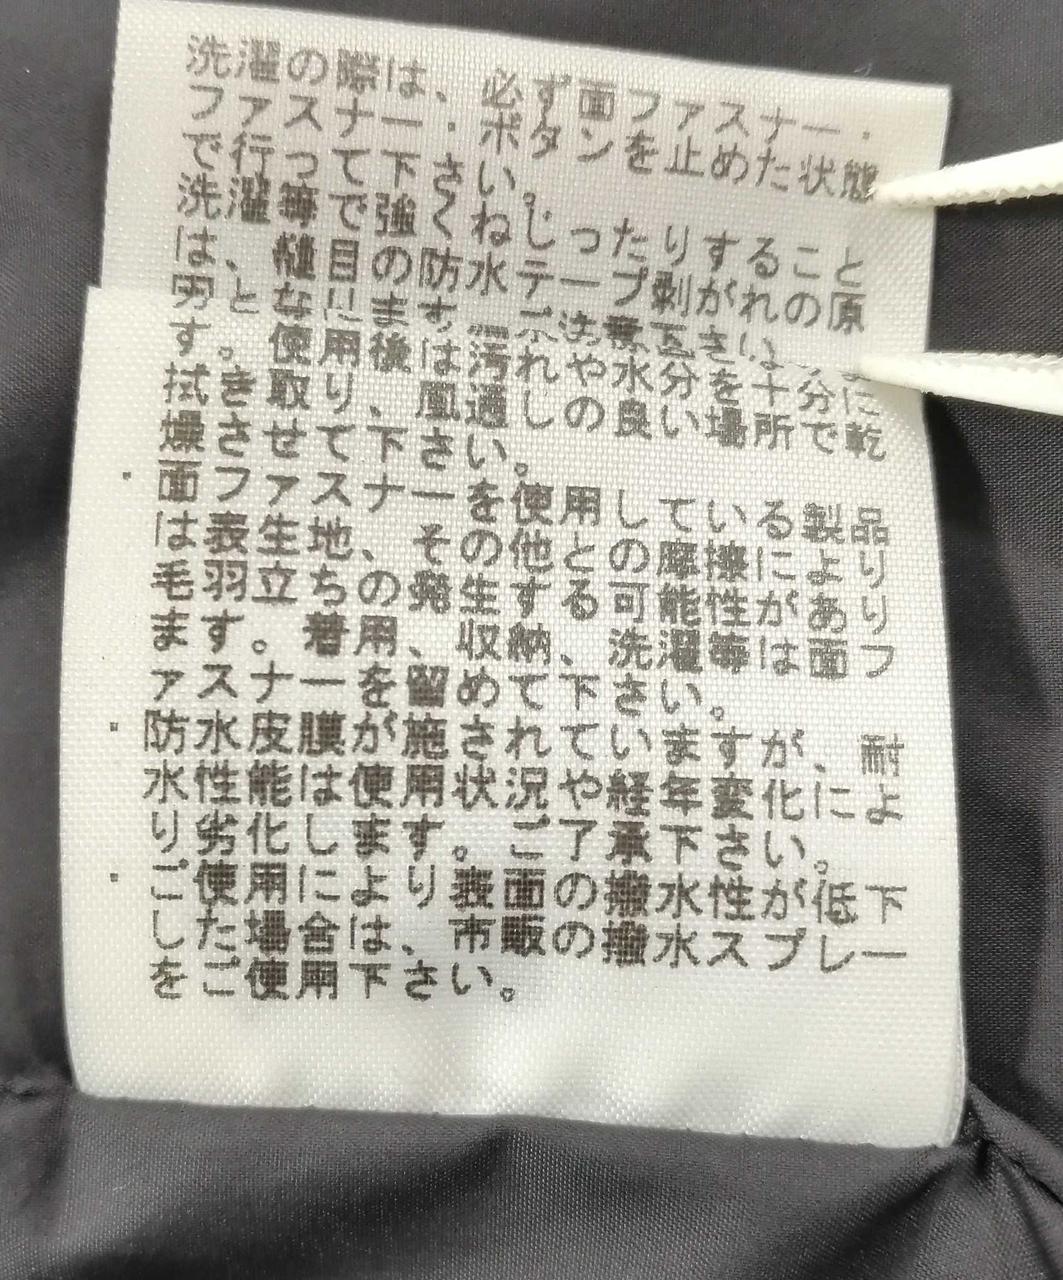 洗濯の際は、必ず面ファスナー・
ファスナー・ボタンを止めた状態
で行って下さい。
洗濯等で強くねじったりすること
は、縫目の防水テープ剥がれの原
す。 使用後は汚れや水分を十分に
拭き取り、風通しの良い場所で乾
燥させて下さい。
・面ファスナーを使用している製品
は表生地、その他との摩擦により
毛羽立ちの発生する可能性があり
ます。着用、収納、洗濯等は面フ
ァスナーを留めて下さい。
・防水皮膜が施されていますが、耐
水性能は使用状況や経年変化によ
り劣化します。ご了承下さい。
・ご使用により表面の撥水性が低下
した場合は、市販の撥水スプレー
をご使用下さい。